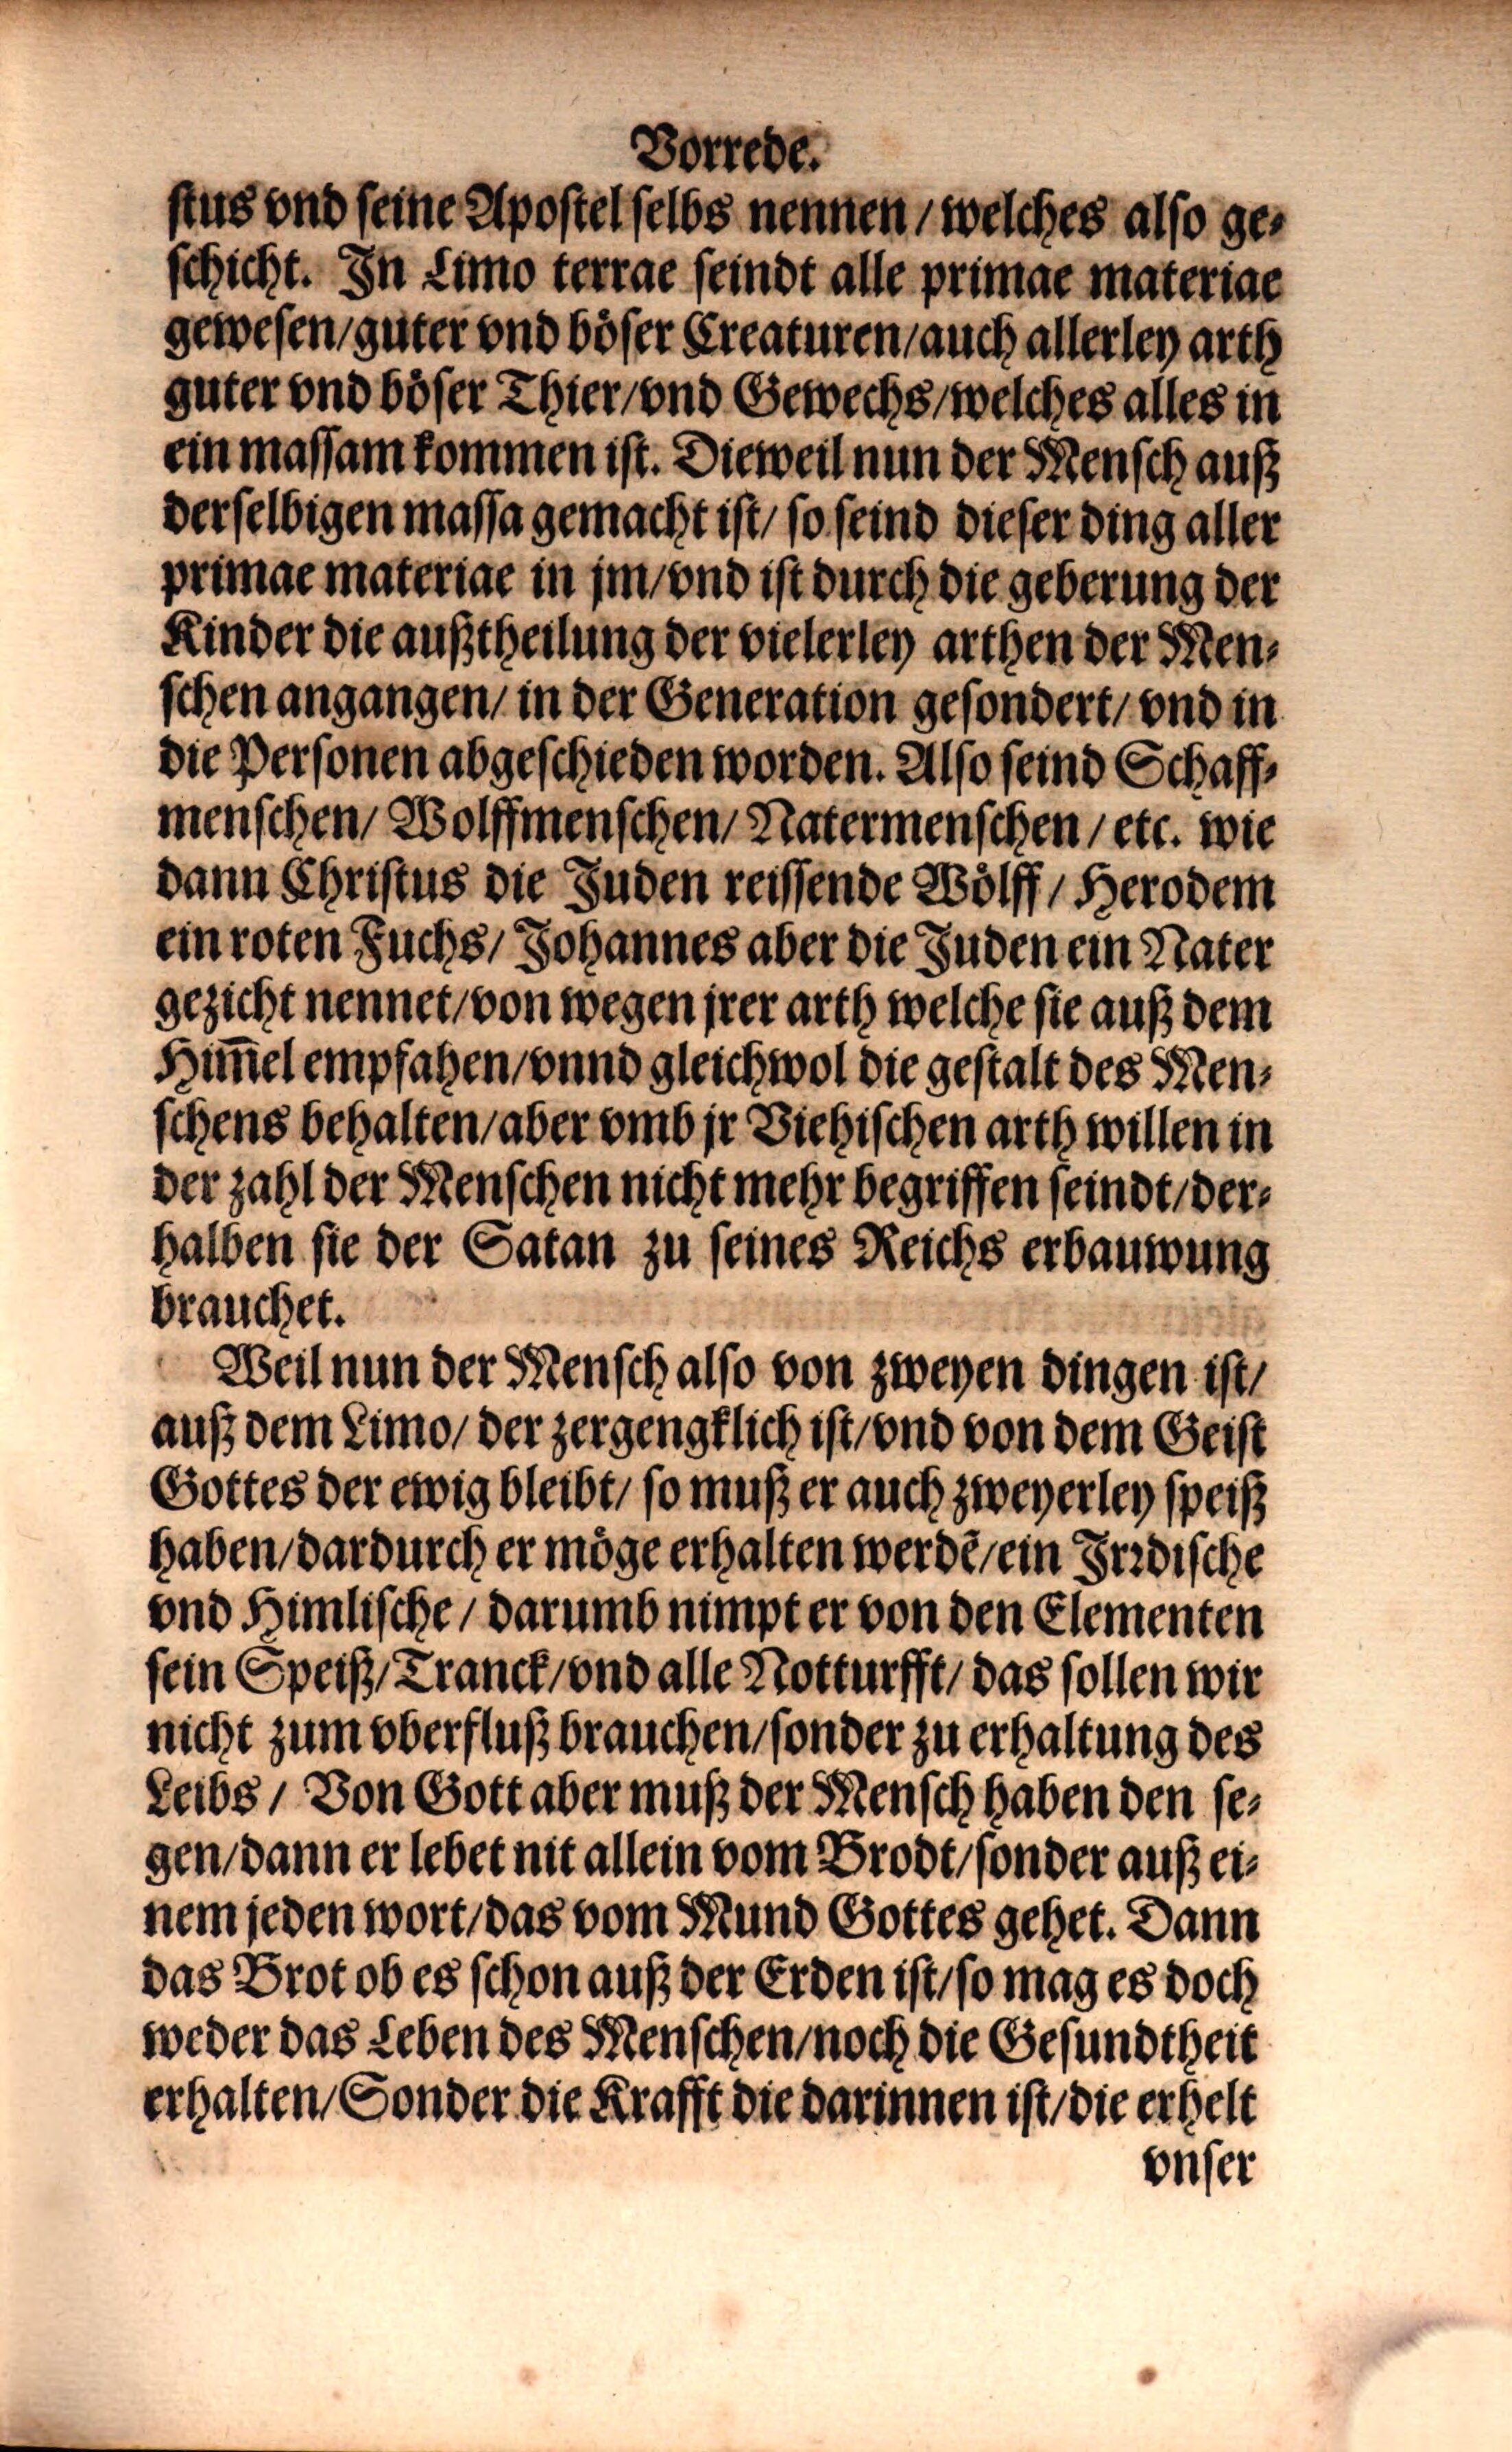 Vorrede.
stus vnd seine Apostel selbs nennen / welches also ge⸗
schicht. In Limo terrae seindt alle primae materiae
gewesen/guter vnd böser Creaturen/auch allerley arth
guter vnd böser Thier/vnd Gewechs/welches alles in
ein massam kommen ist. Dieweil nun der Mensch auß
derselbigen massa gemacht ist/ so seind dieser ding aller
primae materiae in jm/vnd ist durch die geberung der
Kinder die außtheilung der vielerley arthen der Men⸗
schen angangen/ in der Generation gesondert/ vnd in
die Personen abgeschieden worden. Also seind Schaff⸗
menschen/ Wolffmenschen/ Natermenschen / etc. wie
dann Christus die Juden reissende Wölff / Herodem
ein roten Fuchs/ Johannes aber die Juden ein Nater
gezicht nennet/von wegen jrer arth welche sie auß dem
Him̅el empfahen/vnnd gleichwol die gestalt des Men⸗
schens behalten/aber vmb jr Viehischen arth willen in
der zahl der Menschen nicht mehr begriffen seindt/der⸗
halben sie der Satan zu seines Reichs erbauwung
brauchet.
Weil nun der Mensch also von zweyen dingen ist/
auß dem Limo/ der zergengklich ist/vnd von dem Geist
Gottes der ewig bleibt/ so muß er auch zweyerley speiß
haben/dardurch er möge erhalten werdẽ/ein Irꝛdische
vnd Himlische / darumb nimpt er von den Elementen
sein Speiß/Tranck/vnd alle Notturfft/ das sollen wir
nicht zum vberfluß brauchen/sonder zu erhaltung des
Leibs / Von Gott aber muß der Mensch haben den se⸗
gen/dann er lebet nit allein vom Brodt/sonder auß ei⸗
nem jeden wort/das vom Mund Gottes gehet. Dann
das Brot ob es schon auß der Erden ist/so mag es doch
weder das Leben des Menschen/noch die Gesundtheit
erhalten/Sonder die Krafft die darinnen ist/die erhelt
vnser